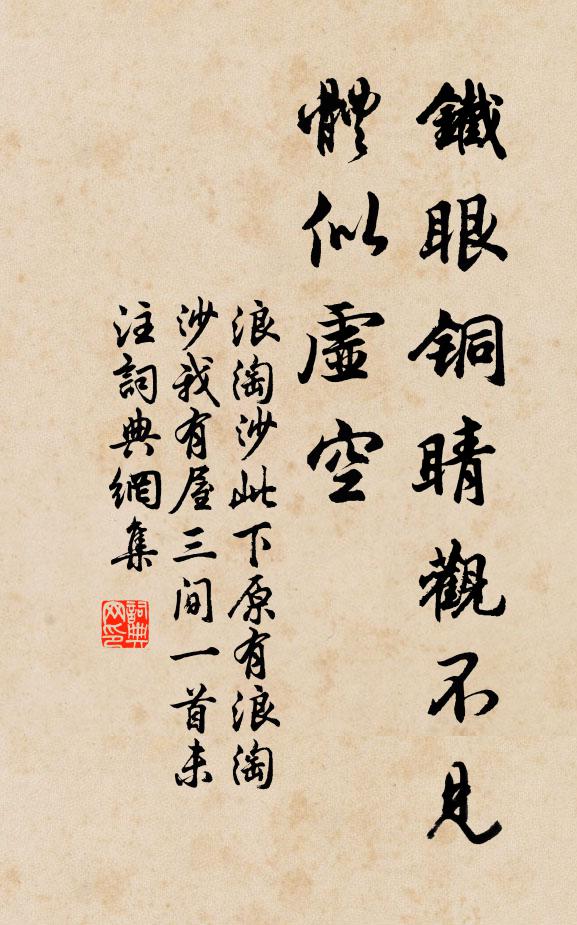 鐵眼銅睛觀不見
體似虛空
浪淘沙此下原有浪淘
沙我有屋三间一首未
注詞典網集
詞典
网印